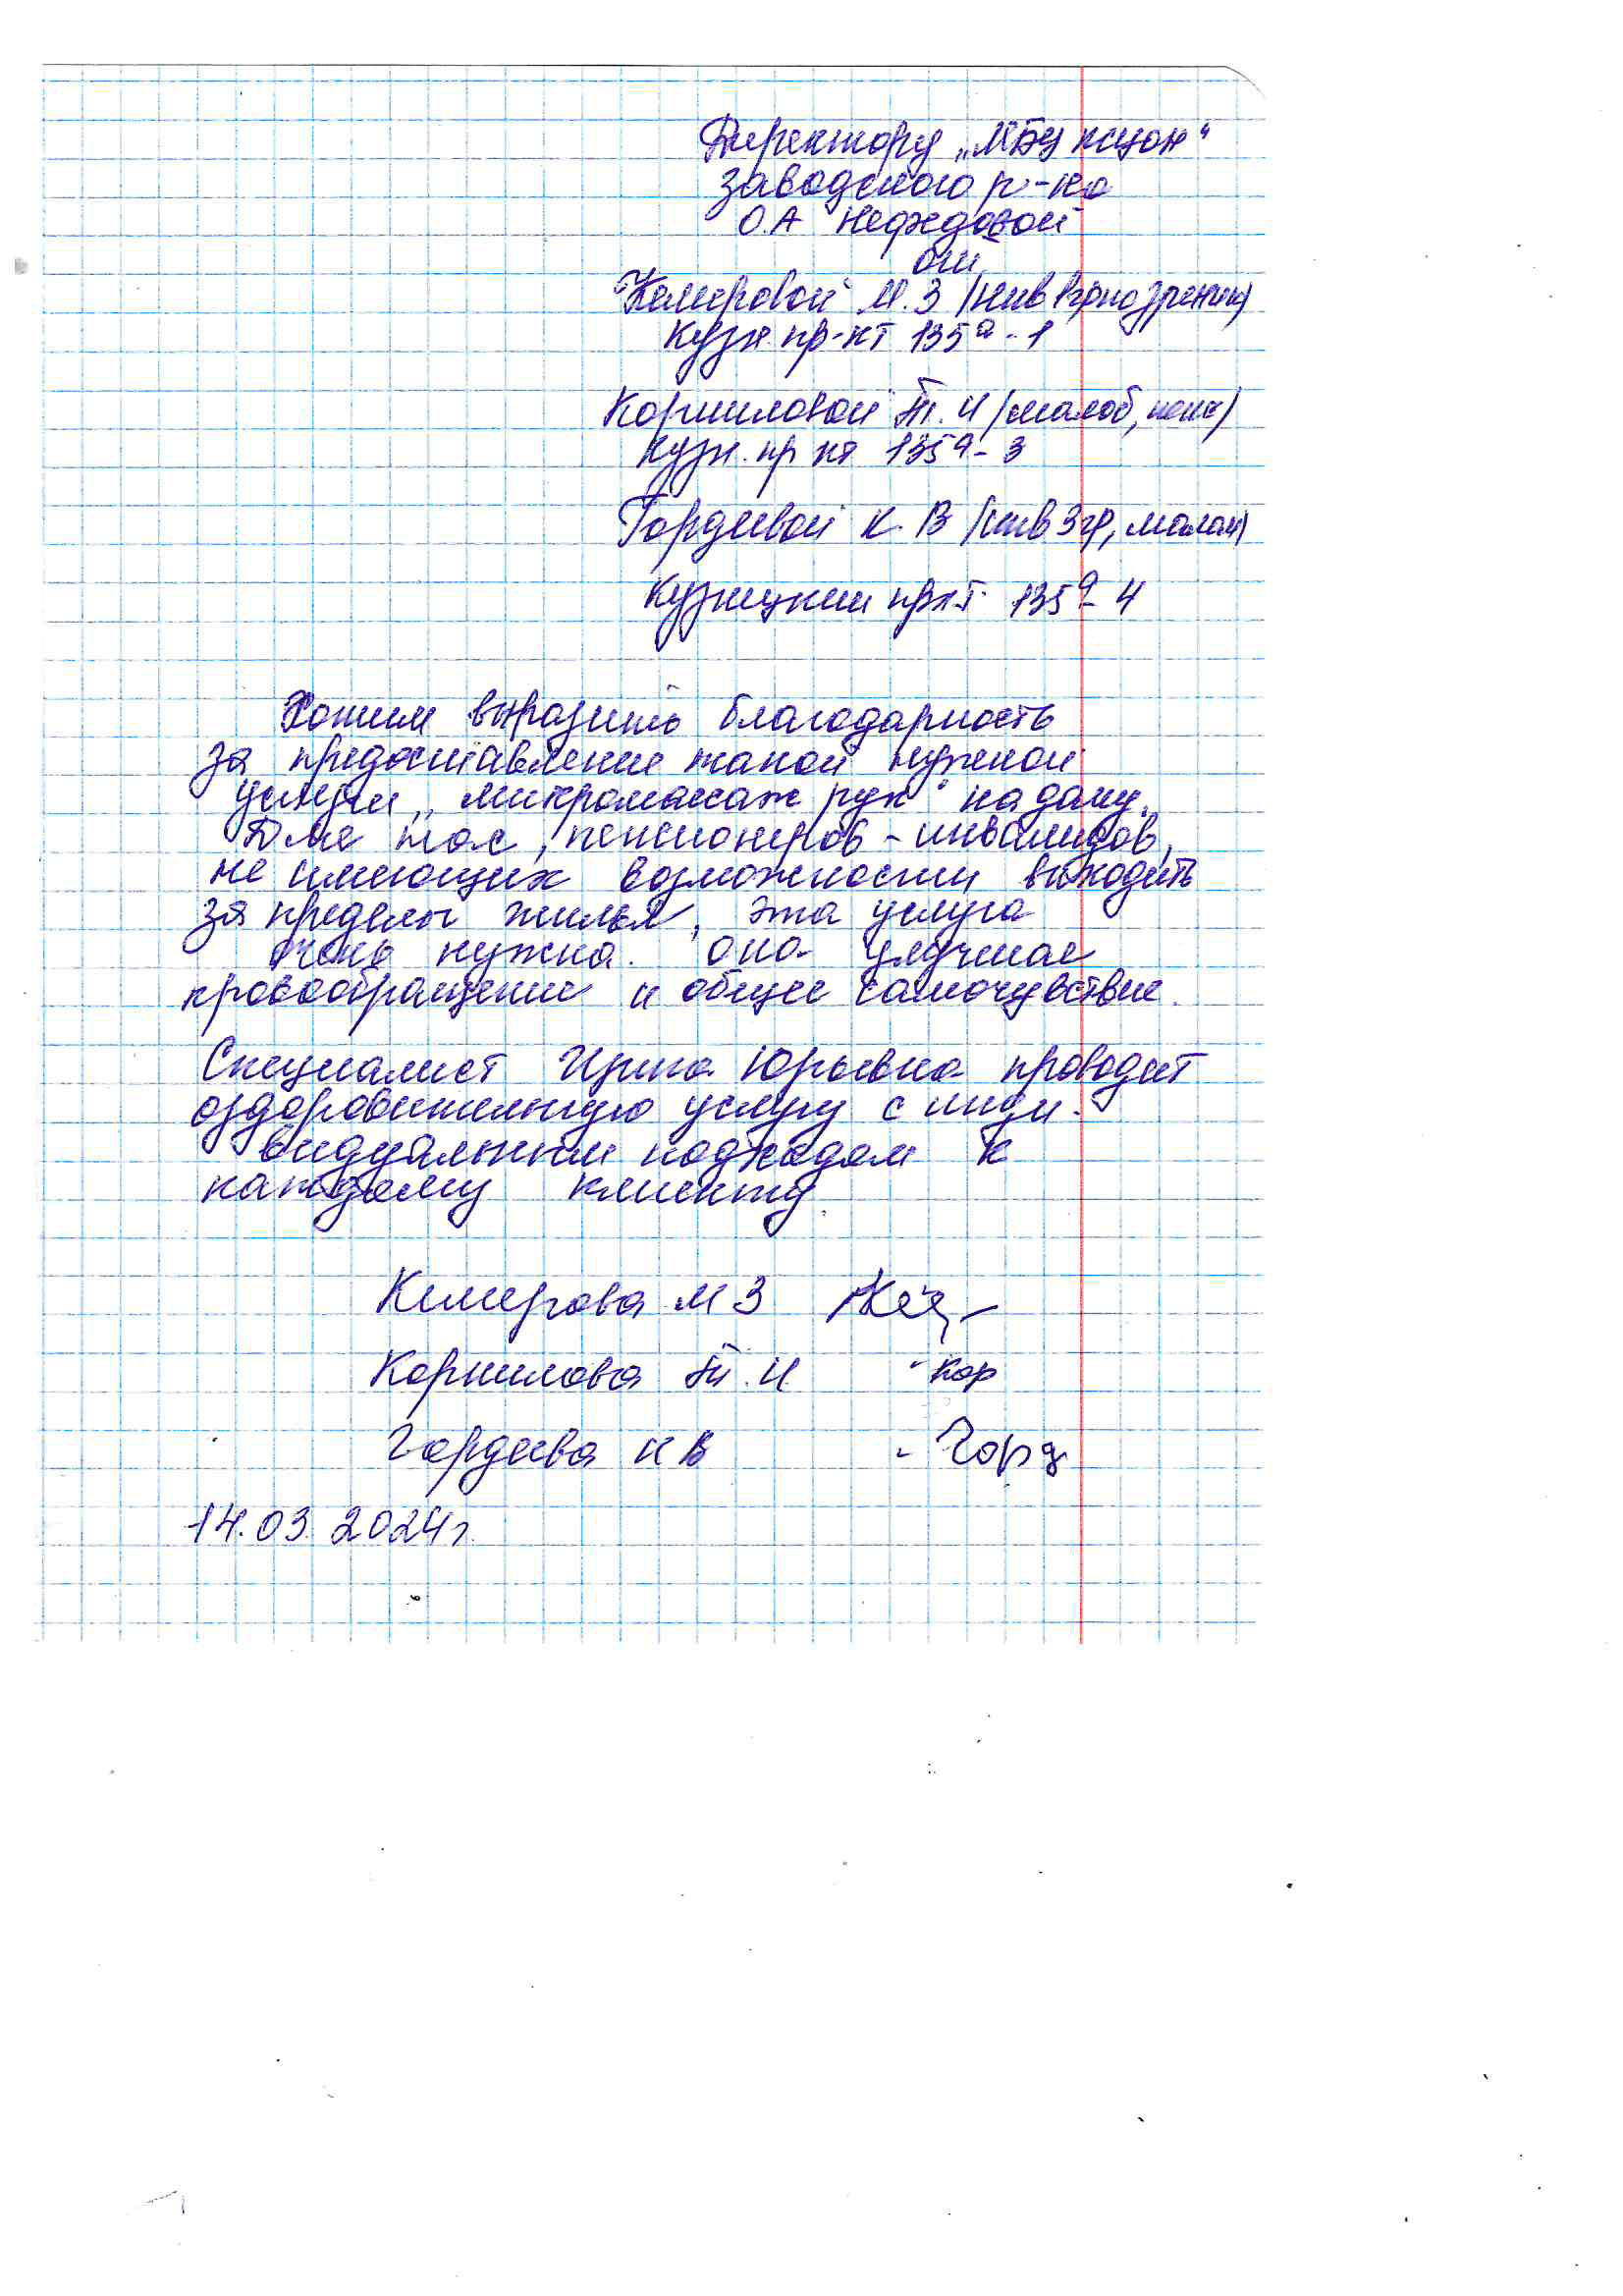 Директору „МБУ КЦСОН"
Заводского р-на
О.А Неждовой
от
Кемеровой М.З /инв 1гр по зрению/
Кузн. пр-кт 135а-1
Корниловой Т.И /малоб, пенс/
Кузн. пр кт 135а-3
Гордеевой К.В /инв 3гр, малом/
Кузнецкий пркт. 135а-4
Хотим выразить благодарность
за предоставление такой нужной
услуги „микромассаж рук" на дому.
Для нас, пенсионеров-инвалидов,
не имеющих возможности выходить
за пределы жилья, эта услуга
очень нужна. Она улучшае
кровообращение и общее самочувствие.
Специалист Ирина Юрьевна проводит
оздоровительную услугу с инди-
видуальным подходом к
каждому клиенту.
Кемерова М З Кем
Корнилова Т.И. - Кор
Гордеева К В - Горд
14.03.2024г.